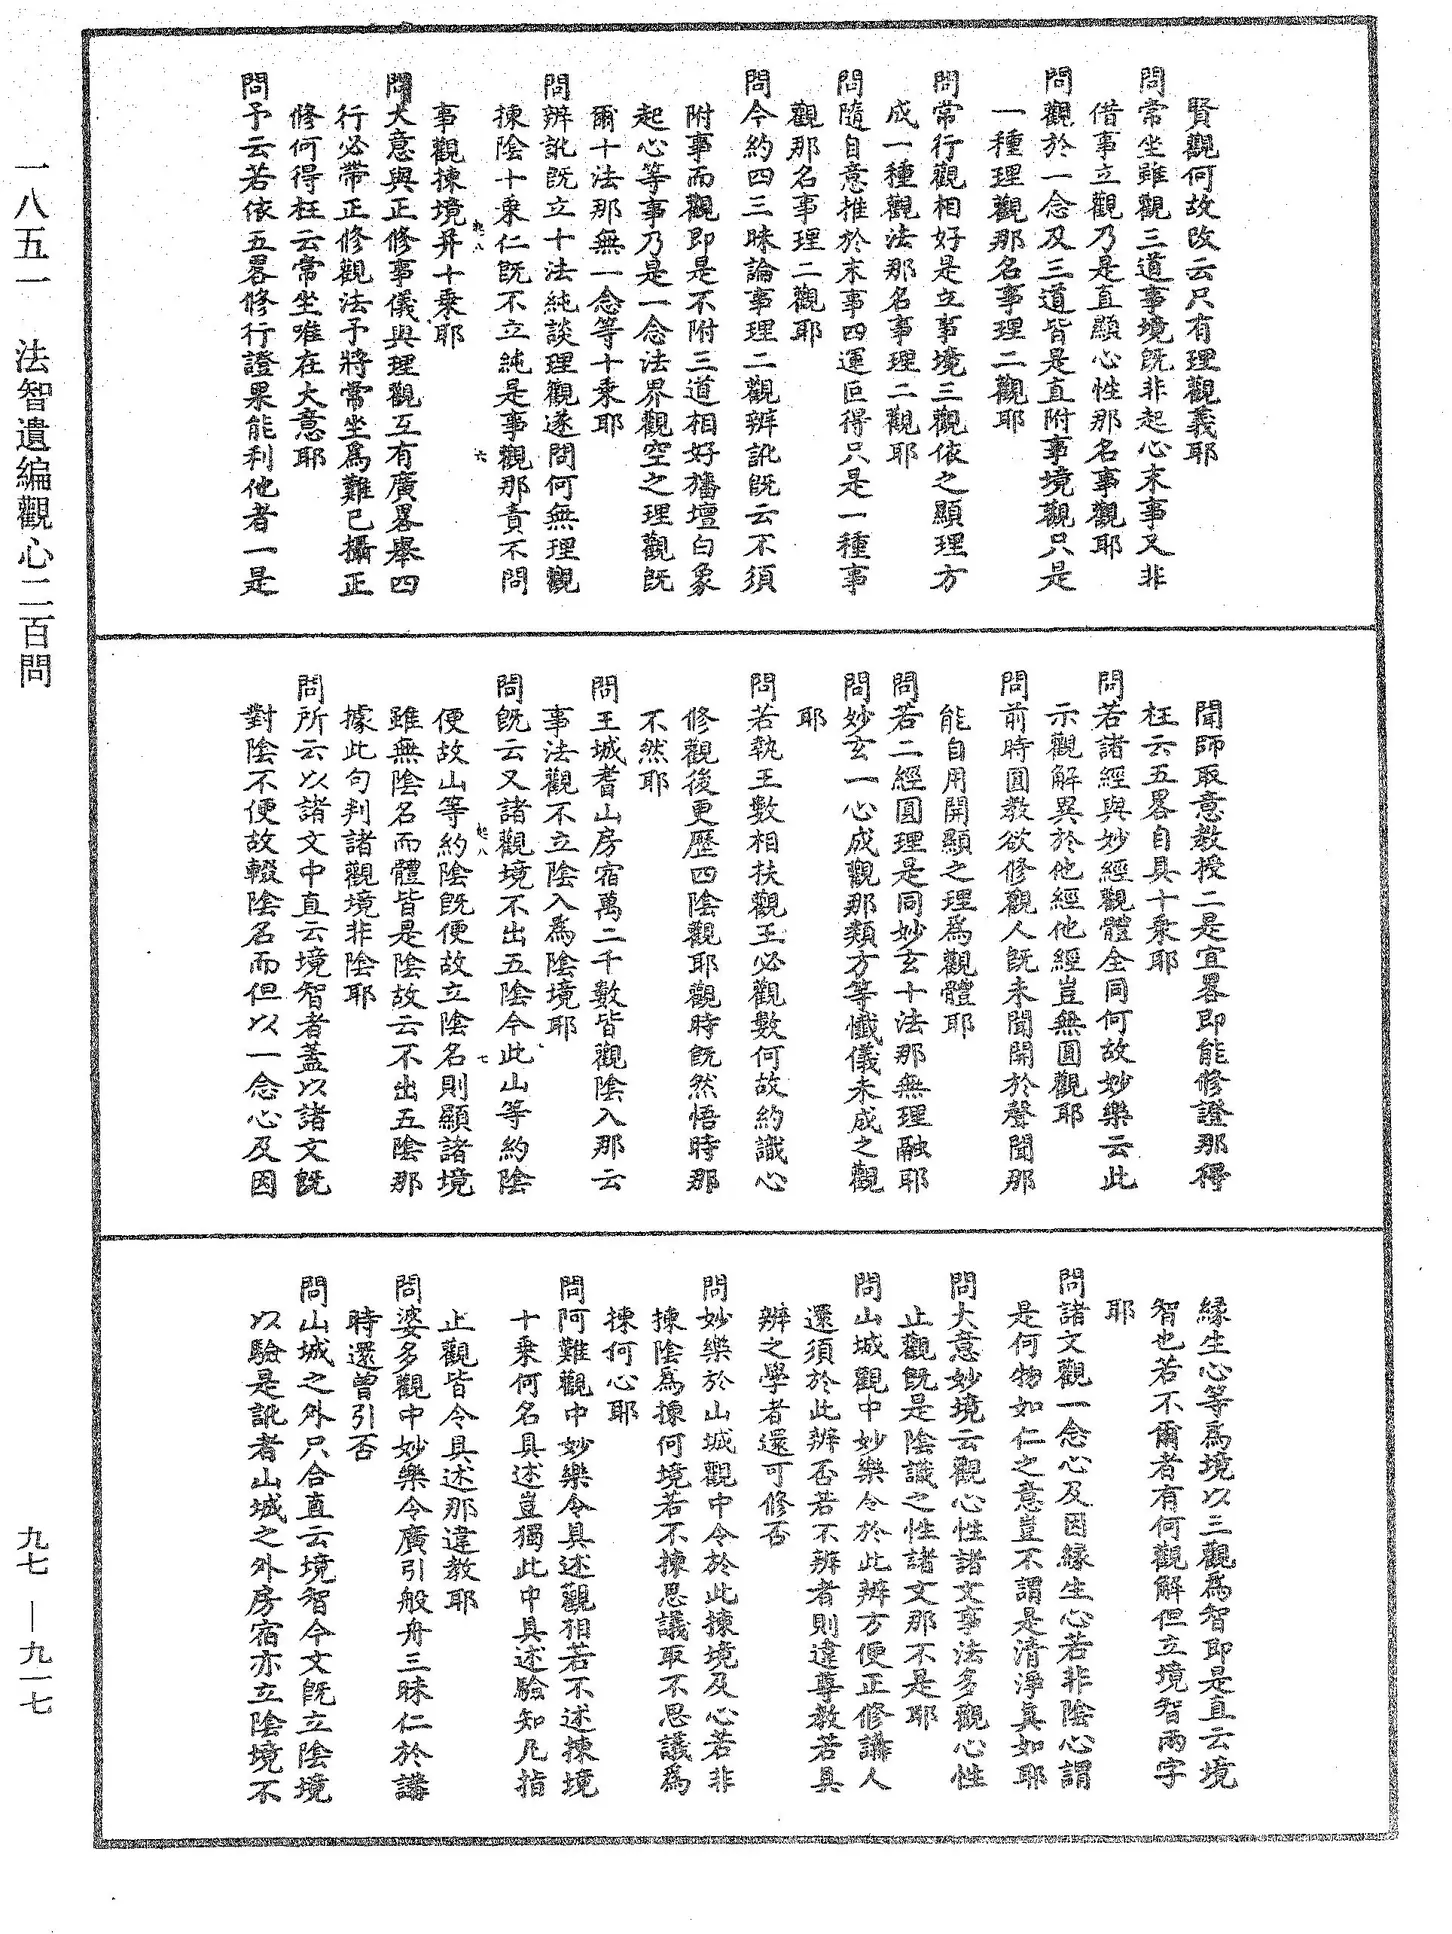 賢觀何故改云只有理觀義耶
問常坐雖觀三道事境旣非起心末事又非
借事立觀乃是直顯心性那名事觀耶
問觀於一念及三道皆是直附事境觀只是
一種理觀那名事理二觀耶
問常行觀相好是立事境三觀依之顯理方
成一種觀法那名事理二觀耶
問隨自意推於末事四運叵得只是一種事
觀那名事理二觀耶
問今約四三昧論事理二觀辨訛旣云不須
附事而觀即是不附三道相好旛壇白象
起心等事乃是一念法界觀空之理觀旣
爾十法那無一念等十乘耶
問辨訛旣立十法純談理觀遂問何無理觀
揀陰十乘仁旣不立純是事觀那責不問
事觀揀境并十乘耶
問大意與正修事儀與理觀互有廣畧舉四
行必帶正修觀法予將常坐爲難已攝正
修何得枉云常坐唯在大意耶
問予云若依五畧修行證果能利他者一是
聞師取意教授二是宜畧即能修證那得
枉云五畧自具十乘耶
問若諸經與妙經觀體全同何故妙樂云此
示觀解異於他經他經豈無圓觀耶
問前時圓教欲修觀人旣未聞開於聲聞那
能自用開顯之理爲觀體耶
問若二經圓理是同妙玄十法那無理融耶
問妙玄一心成觀那類方等懺儀未成之觀
耶
問若執王數相扶觀王必觀數何故約識心
修觀後更歷四陰觀耶觀時旣然悟時那
不然耶
問王城耆山房宿萬二千數皆觀陰入那云
事法觀不立陰入爲陰境耶
問旣云又諸觀境不出五陰今此山等約陰
便故山等約陰旣便故立陰名則顯諸境
雖無陰名而體皆是陰故云不出五陰那
據此句判諸觀境非陰耶
問所云以諸文中直云境智者蓋以諸文旣
對陰不便故輟陰名而但以一念心及因
緣生心等爲境以三觀爲智即是直云境
智也若不爾者有何觀解但立境智兩字
耶
問諸文觀一念心及因緣生心若非陰心謂
是何物如仁之意豈不謂是清淨眞如耶
問大意妙境云觀心性諸文事法多觀心性
止觀旣是陰識之性諸文那不是耶
問山城觀中妙樂令於此辨方便正修講人
還須於此辨否若不辨者則違尊教若具
辨之學者還可修否
問妙樂於山城觀中令於此揀境及心若非
揀陰爲揀何境若不揀思議取不思議爲
揀何心耶
問阿難觀中妙樂令具述觀相若不述揀境
十乘何名具述豈獨此中具述驗知凡指
止觀皆令具述那違教耶
問婆多觀中妙樂令廣引般舟三昧仁於講
時還曾引否
問山城之外只合直云境智今文旣立陰境
以驗是訛者山城之外房宿亦立陰境不
起八
六
起八
七
一八五一　法智遺編觀心二百問
九七　—九一七